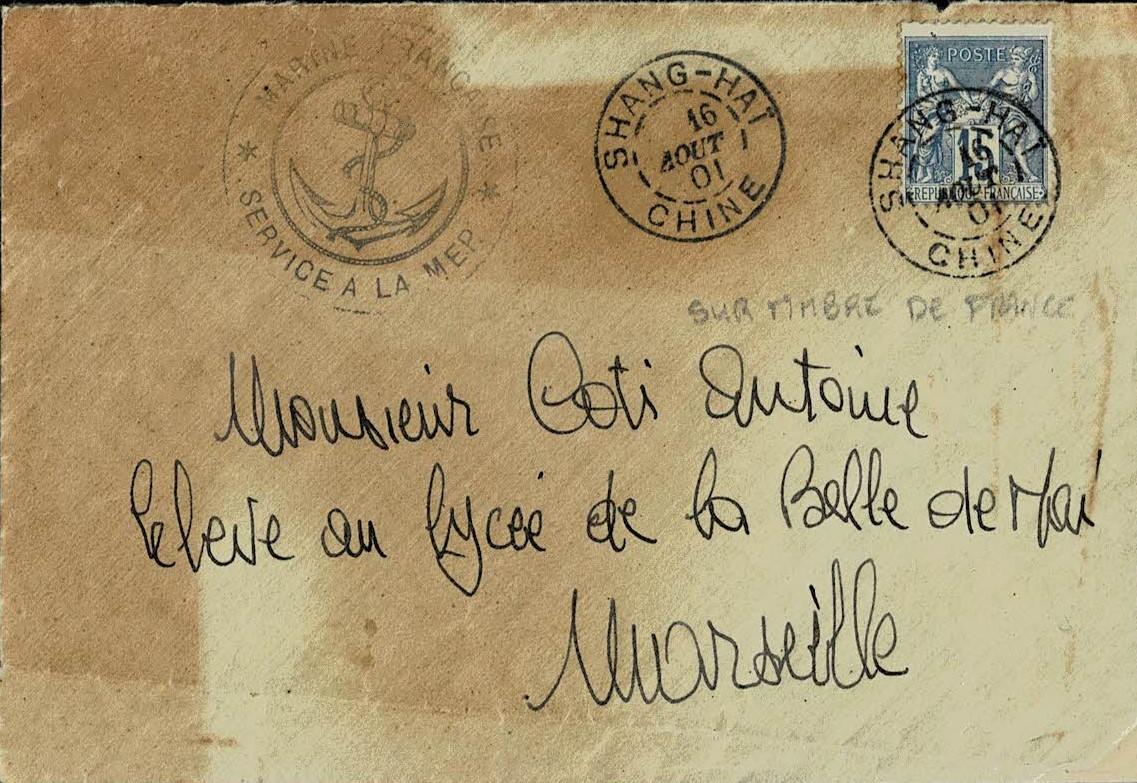 MARINE FRANÇAISE
* SERVICE A LA MER *
SHANG-HAÏ
16
AOUT
01
CHINE
POSTES
15
REPUBLIQUE FRANÇAISE
SHANG-HAÏ
16
AOUT
01
CHINE
SUR TIMBRE DE FRANCE
Monsieur Coti Antoine
Eleve au Lycée de la Belle de Mai
Marseille